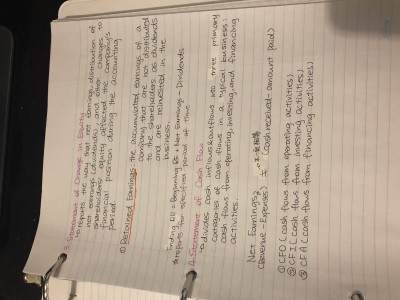 3. Statement of Change in Equity
↳ reports the way that net earnings, distribution of
net earnings (dividends), and other changes to
shareholders' equity affected the company's
financial position during the accounting
period.
① Retained Earnings: the accumulated earnings of a
company that are not distributed
to the shareholders as dividends
and are reinvested in the
business.
Ending RE = Beginning RE + Net Earnings - Dividends
↳ reports for specified period of time
4. Statement of Cash Flow
↳ divides cash inflows & outflows into three primary
categories of cash flows in a typical business:
cash flows from operating, investing, and financing
activities.
Net Earnings
(Revenue - Expenses) ≠ (cash received - amount paid)
① CFO (cash flows from operating activities)
② CFI (cash flows from investing activities)
③ CFA (cash flows from financing activities)